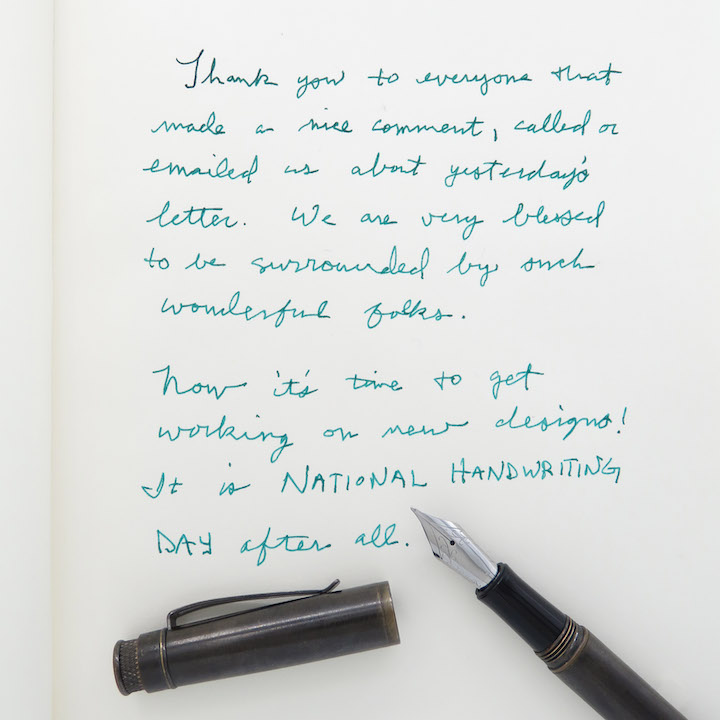 Thank you to everyone that
made a nice comment, called or
emailed us about yesterday's
letter. We are very blessed
to be surrounded by such
wonderful folks.
Now it's time to get
working on new designs!
It is NATIONAL HANDWRITING
DAY after all.